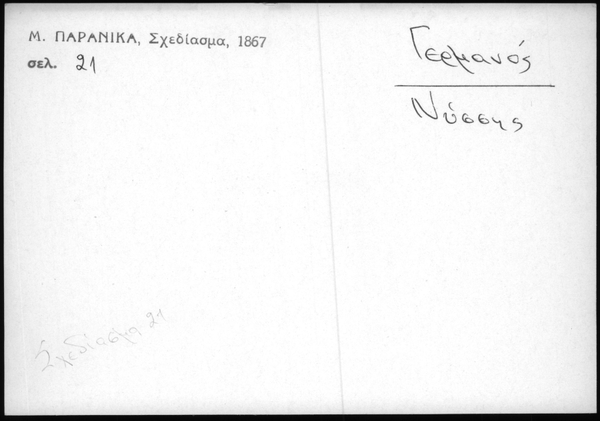 Μ. ΠΑΡΑΝΙΚΑ, Σχεδίασμα, 1867
σελ. 21
Γερμανός
Νύσσης
Σχεδίασμα 21